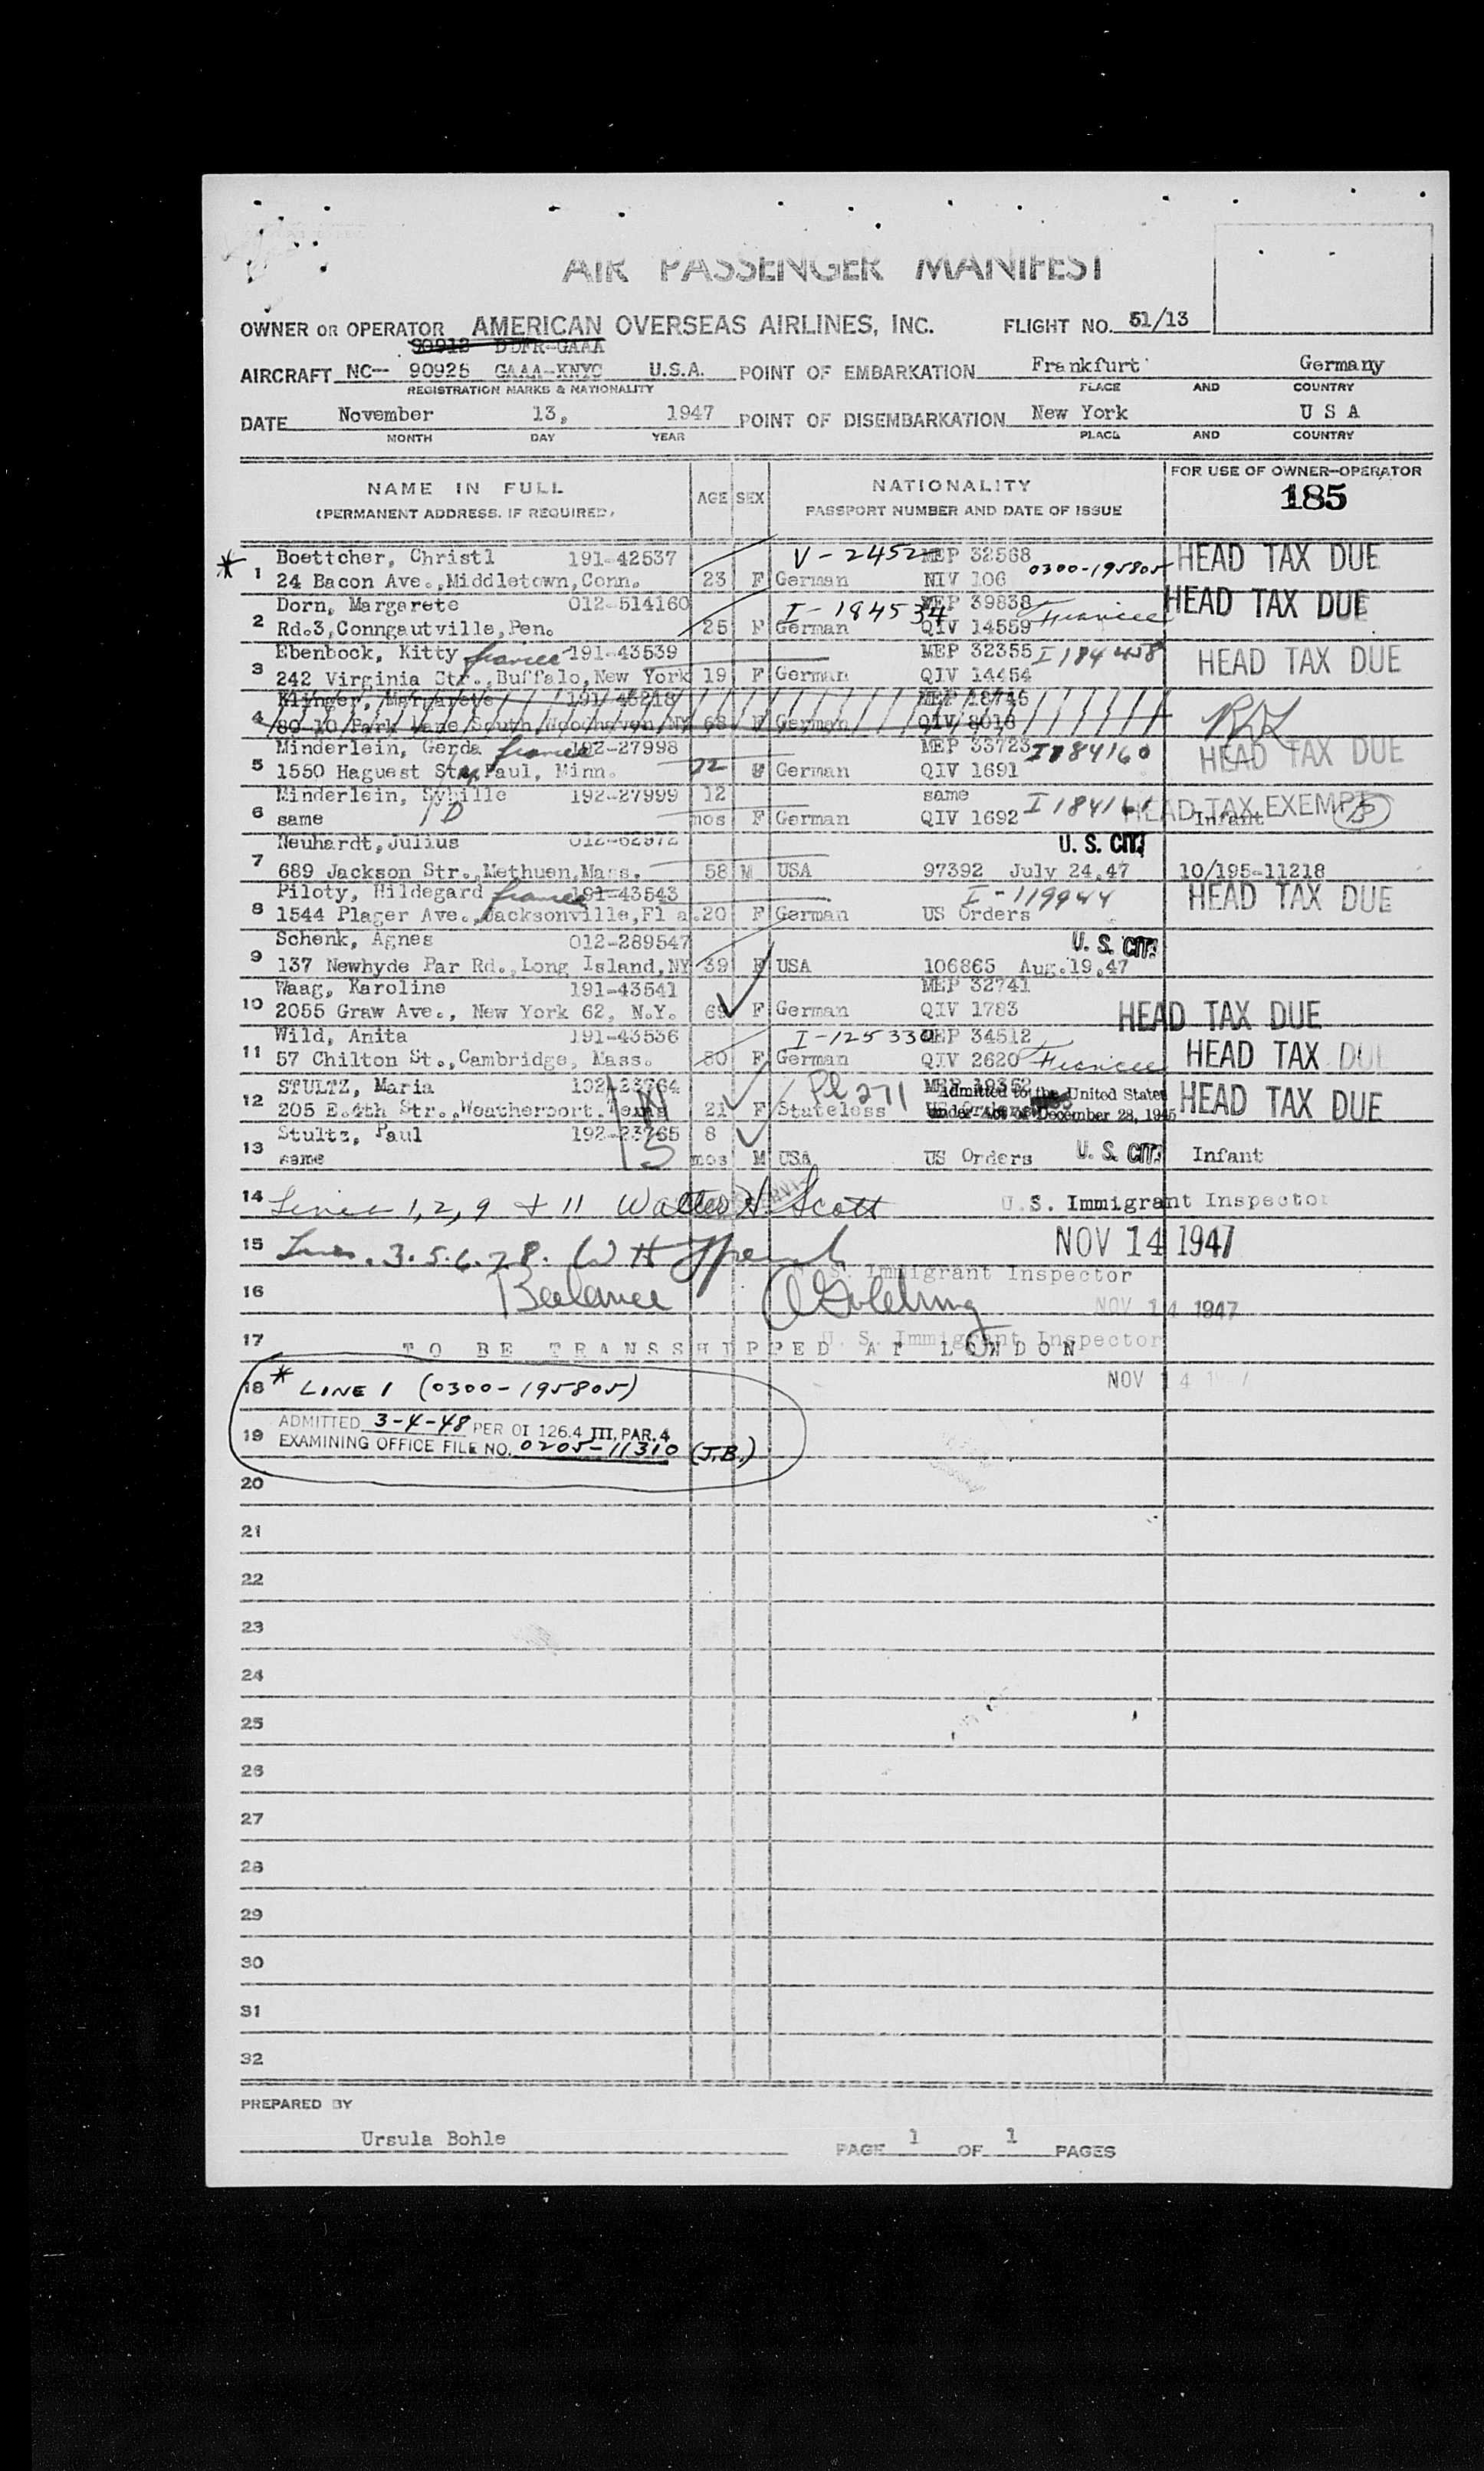 AIR PASSENGER MANIFEST
OWNER OR OPERATOR AMERICAN OVERSEAS AIRLINES, INC. FLIGHT NO. 51/13
90913 DDFR-GAAA
AIRCRAFT NC-- 90925 GAAA-KNYC U.S.A. POINT OF EMBARKATION Frankfurt Germany
REGISTRATION MARKS & NATIONALITY PLACE AND COUNTRY
DATE November 13, 1947 POINT OF DISEMBARKATION New York U S A
MONTH DAY YEAR PLACE AND COUNTRY
NAME IN FULL AGE SEX NATIONALITY FOR USE OF OWNER-OPERATOR
(PERMANENT ADDRESS, IF REQUIRED) PASSPORT NUMBER AND DATE OF ISSUE 185
* 1 Boettcher, Christl 191-42537 V-2452 MEP 32568 HEAD TAX DUE
24 Bacon Ave., Middletown, Conn. 23 F German NIV 106 0300-195805
2 Dorn, Margarete 012-514160 I-184534 MEP 39838 HEAD TAX DUE
Rd.3, Conngautville, Pen. 25 F German QIV 14559 Fiancee
3 Ebenbock, Kitty fiancee 191-43539 MEP 32355 I 184458 HEAD TAX DUE
242 Virginia Str., Buffalo, New York 19 F German QIV 14454
4 Klinger, Margarete 191-45218 MEP 18745
80-10 Park Lane South Woodhaven NY 68 F German QIV 8016
5 Minderlein, Gerda fiancee 192-27998 MEP 33723 I 184160 HEAD TAX DUE
1550 Haguest St. Paul, Minn. 22 F German QIV 1691
6 Minderlein, Sybille 192-27999 12 same I 184161 HEAD TAX EXEMPT
same mos F German QIV 1692 Infant
7 Neuhardt, Julius 012-62972 U. S. CIT.
689 Jackson Str., Methuen, Mass. 58 M USA 97392 July 24.47 10/195-11218
8 Piloty, Hildegard fiancee 191-43543 I-119944 HEAD TAX DUE
1544 Plager Ave., Jacksonville, Fl a. 20 F German US Orders
9 Schenk, Agnes 012-289547 U. S. CIT.
137 Newhyde Par Rd., Long Island, NY 39 F USA 106865 Aug. 19.47
10 Waag, Karoline 191-43541 MEP 32741 HEAD TAX DUE
2055 Graw Ave., New York 62, N.Y. 69 F German QIV 1783
11 Wild, Anita 191-43536 I-125330 MEP 34512 HEAD TAX DUE
57 Chilton St., Cambridge, Mass. 30 F German QIV 2620 Fiancee
12 STULTZ, Maria 192-23764 Pl 271 MEP 19352 Admitted to the United States HEAD TAX DUE
205 E.4th Str., Weatherport. Texas 21 F Stateless under Act of December 28, 1945
13 Stultz, Paul 192-23765 8
same mos M USA US Orders U. S. CIT. Infant
14 Lines 1, 2, 9 + 11 Walter H. Scott U. S. Immigrant Inspector
15 Lines. 3.5.6.7.8. W H NOV 14 1947
U. S. Immigrant Inspector
16 Balance NOV 14 1947
17 TO BE TRANSSHIPPED AT LONDON U. S. Immigrant Inspector
18 * LINE 1 (0300-195805) NOV 14 1947
ADMITTED 3-4-48 PER OI 126.4 III, PAR. 4
19 EXAMINING OFFICE FILE NO. 0205-11310 (J.B.)
20
21
22
23
24
25
26
27
28
29
30
31
32
PREPARED BY
Ursula Bohle PAGE 1 OF 1 PAGES